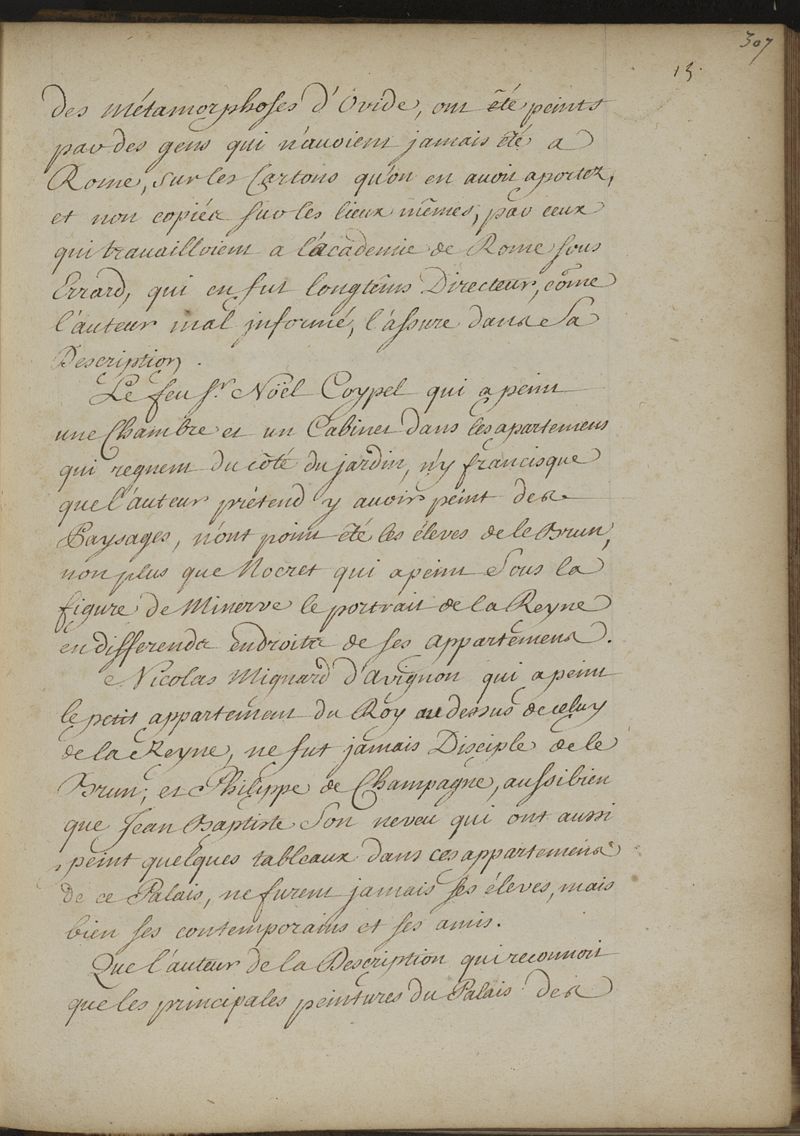 307
13.
des métamorphoses d'Ovide, ont été peints
par des gens qui n'avoient jamais été a
Rome, sur les Cartons qu'on en avoit aportez,
et non copiéz sur les lieux mêmes, par ceux
qui travailloient a l'academie de Rome sous
Errard, qui en fut longtêms Directeur, côme
l'auteur mal informé, l'assure dans sa
Description.
Le feu S.r Noël Coypel qui a peint
une Chambre et un Cabinet dans les apartemens
qui regnent du côté du jardin, n'y francisque
que l'auteur prétend y avoir peint des
Paysages, n'ont point été les éleves de le Brun,
non plus que Nocret qui a peint sous la
figure de Minerve le portrait de la Reyne
en differends endroits de ses appartemens.
Nicolas Mignard d'Avignon qui a peint
le petit appartement du Roy au dessus de celuy
de la Reyne, ne fut jamais Disciple de le
Brun; et Philippe de Champagne, aussi bien
que Jean Baptiste son neveu qui ont aussi
peint quelques tableaux dans ces appartemens
de ce Palais, ne furent jamais ses éleves, mais
bien ses contemporains et ses amis.
Que l'auteur de la Description qui reconnoit
que les principales peintures du Palais des